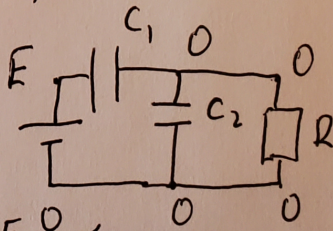 C₁ 0
E 0
C₂
R
0 0 0